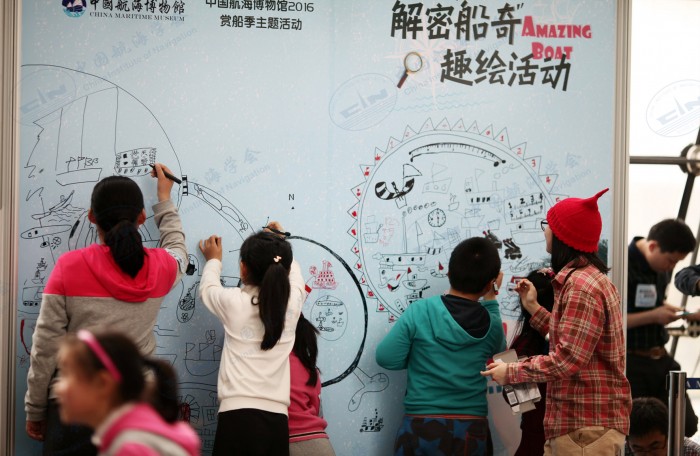 中国航海博物馆
CHINA MARITIME MUSEUM
中国航海博物馆2016
赏船季主题活动
解密船奇”
AMAZING
BOAT
趣绘活动
N